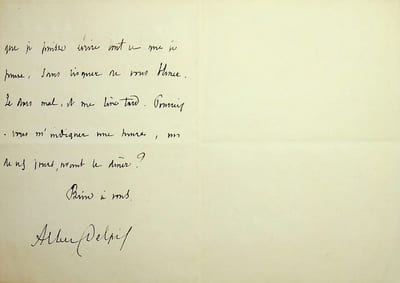 que je puisse écrire tout ce que je
pense, sans risquer de vous
Je dors mal, et me lève tard. Pourriez
-vous m'indiquer une heure, un
de ces jours, avant le dîner ?
Bien à vous.
Albert Delpit